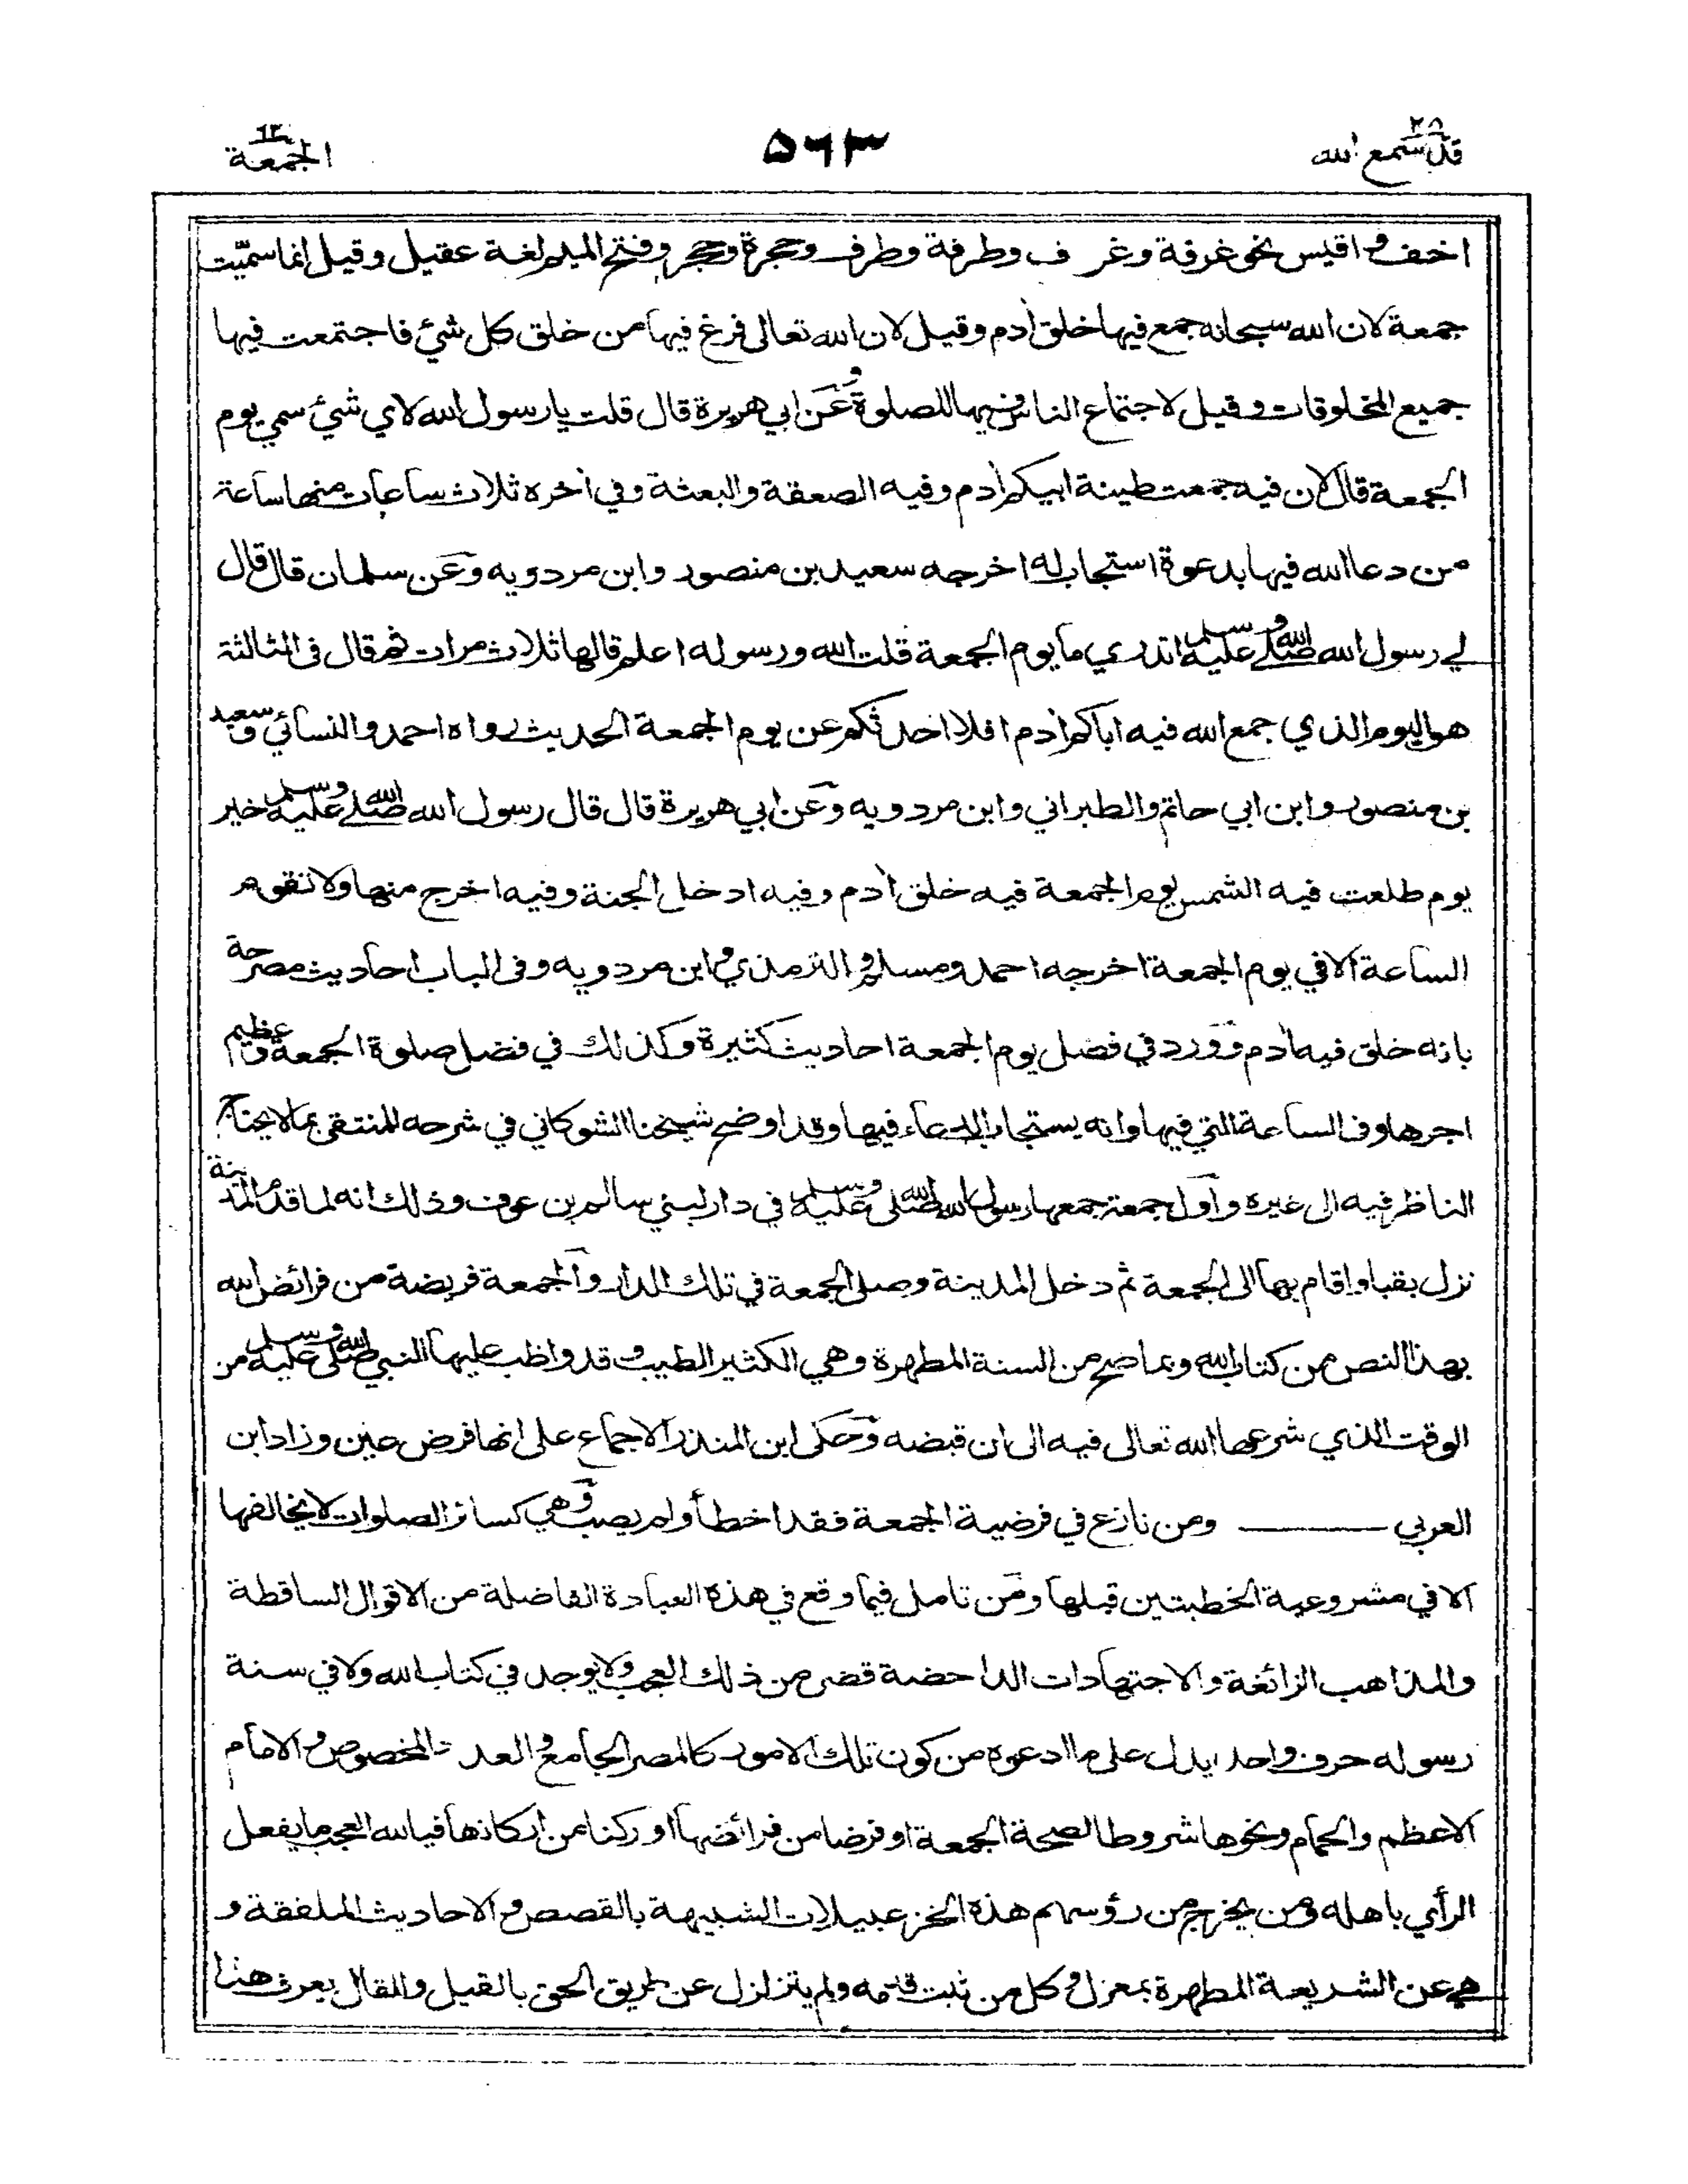 قد سمع الله ٢٨
٥٦٣
الجمعة ٦٢
اخف واقيس نحو غرفة وغرف وطرفة وطرف وحجرة وحجر وفتح الميم لغة عقيل وقيل انما سميّت
جمعة لان الله سبحانه جمع فيها خلق اٰدم وقيل لان الله تعالى فرغ فيها من خلق كل شئ فاجتمعت فيها
جميع المخلوقات وقيل لاجتماع الناس فيها للصلوة وعن ابي هريرة قال قلت يا رسول الله لاي شئ سمي يوم
الجمعة قال لان فيه جمعت طينة ابيكم اٰدم وفيه الصعقة والبعثة وفي اٰخره ثلاث ساعات منها ساعة
من دعا الله فيها بدعوة استجاب له اخرجه سعيد بن منصور وابن مردويه وعن سلمان قال قال
لي رسول الله صلى الله عليه وسلم اتدري ما يوم الجمعة قلت الله ورسوله اعلم قالها ثلاث مرات ثم قال فى الثالثة
هو اليوم الذي جمع الله فيه اباكم اٰدم افلا احدثكم عن يوم الجمعة الحديث رواه احمد والنسائي وسعيد
بن منصور وابن ابي حاتم والطبراني وابن مردويه وعن ابي هريرة قال قال رسول الله صلى الله عليه وسلم خير
يوم طلعت فيه الشمس يوم الجمعة فيه خلق اٰدم وفيه ادخل الجنة وفيه اخرج منها ولا تقوم
الساعة الا في يوم الجمعة اخرجه احمد ومسلم والترمذي وابن مردويه وفى الباب احاديث مصرحة
بانه خلق فيه اٰدم وورد في فضل يوم الجمعة احاديث كثيرة وكذلك في فضل صلوة الجمعة وعظيم
اجرها وفى الساعة التي فيها وانه يستجاب الدعاء فيها وقد اوضح شيخنا الشوكاني في شرحه للمنتقى بما لا يحتاج
الناظر فيه الى غيره واول جمعة جمعها رسول الله صلى الله عليه وسلم في دار لبني سالم بن عوف وذلك انه لما قدم المدينة
نزل بقبا واقام بها الى الجمعة ثم دخل المدينة وصلى الجمعة في تلك الدار والجمعة فريضة من فرائض الله
بهذا النص من كتاب الله وبما صح من السنة المطهرة وهي الكثير الطيب وقد واظب عليها النبي صلى الله عليه وسلم من
الوقت الذي شرعها الله تعالى فيه الى ان قبضه وحكى ابن المنذر الاجماع على انها فرض عين وزاد ابن
العربي ومن نازع في فرضية الجمعة فقد اخطأ ولم يصب وهي كسائر الصلوات لا يخالفها
الا في مشروعية الخطبتين قبلها ومن تامل فيما وقع في هذه العبادة الفاضلة من الاقوال الساقطة
والمذاهب الزائغة والاجتهادات الداحضة قضى من ذلك العجب ولا يوجد في كتاب الله ولا في سنة
رسوله حرف واحد يدل على ما ادعوه من كون تلك الامور كالمصر الجامع والعدد المخصوص والامام
الاعظم والحمام ونحوها شروطا لصحة الجمعة او فرضا من فرائضها او ركنا من اركانها فيا لله العجب ما يفعل
الرأي باهله ومن يخرج من رؤسهم هذه الخزعبيلات الشبيهة بالقصص والاحاديث الملفقة و
هي عن الشريعة المطهرة بمعزل وكل من ثبت قدمه ولم يتزلزل عن طريق الحق بالقيل والقال يعرف هذا